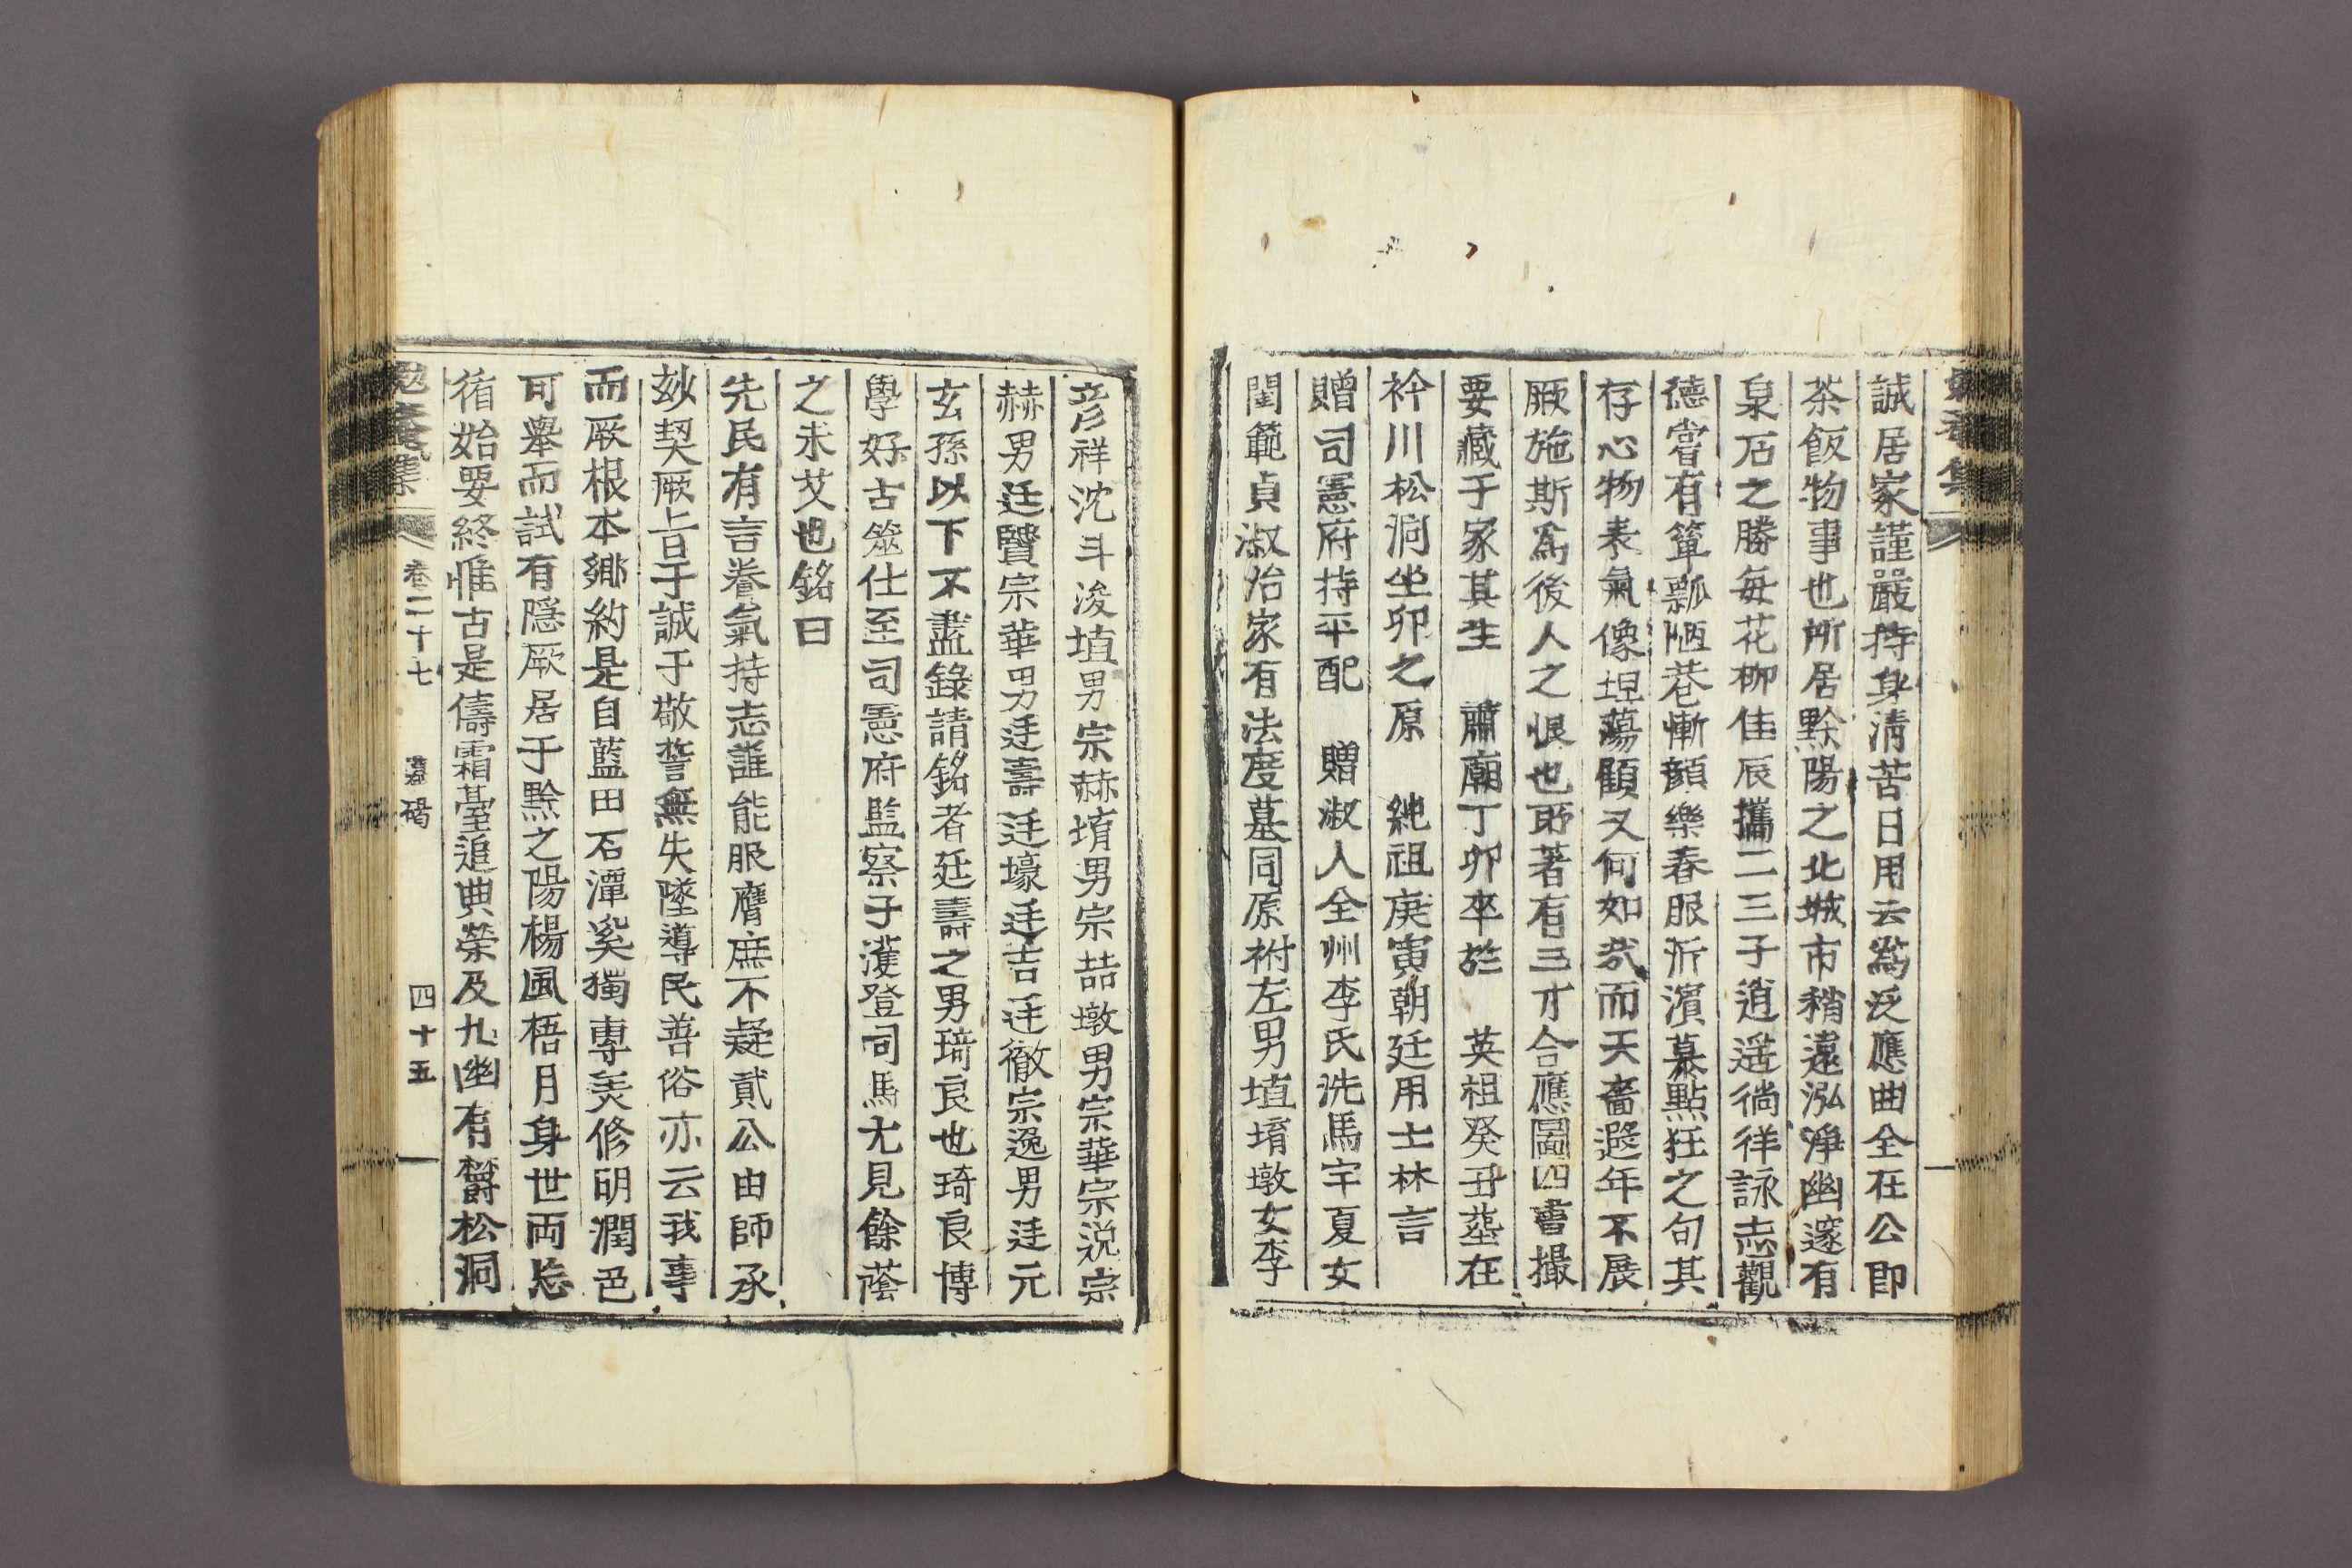 勉菴集
誠居家謹嚴持身淸苦日用云爲泛應曲全在公卽
茶飯物事也所居黔陽之北城市稍遠泓淨幽邃有
泉石之勝每花柳佳辰攜二三子逍遥徜徉詠志觀
德嘗有簞瓢陋巷慚顔樂春服沂濱慕點狂之句其
存心物表氣像坦蕩顧又何如哉而天嗇遐年不展
厥施斯爲後人之恨也所著有三才合應圖四書撮
要藏于家其生 肅廟丁卯卒於 英祖癸丑葬在
衿川松洞坐卯之原 純祖庚寅朝廷用士林言
贈司憲府持平配 贈淑人全州李氏洗馬宇夏女
閨範貞淑治家有法度墓同原祔左男埴堉墩女李
彦祥沈斗浚埴男宗赫堉男宗喆墩男宗華宗説宗
赫男廷賢宗華男廷壽廷壕廷吉廷徹宗逸男廷元
玄孫以下不盡錄請銘者廷壽之男琦良也琦良博
學好古筮仕至司憲府監察子濩登司馬尤見餘蔭
之未艾也銘曰
先民有言養氣持志誰能服膺庶不疑貳公由師承
妙契厥旨于誠于敬誓無失墜導民善俗亦云我事
而厥根本鄉約是自藍田石潭奚獨專美修明潤色
可擧而試有隱厥居于黔之陽楊風梧月身世両忘
循始要終惟古是儔霜臺追典榮及九幽有欝松洞
勉菴集 卷二十七 墓碣 四十五